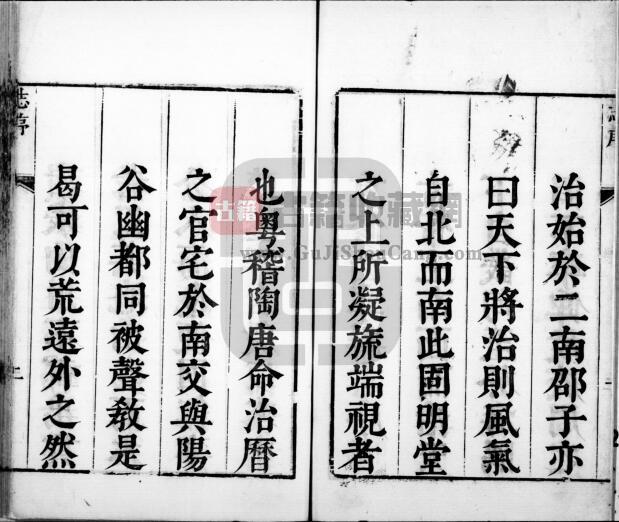 治始於二南邵子亦
曰天下將治則風氣
自北而南此固明堂
之上所凝旒端視者
也粤稽陶唐命治曆
之官宅於南交與陽
谷幽都同被聲敎是
曷可以荒遠外之然
志序
二
古籍
古籍收藏網
www.GuJiShouCang.com